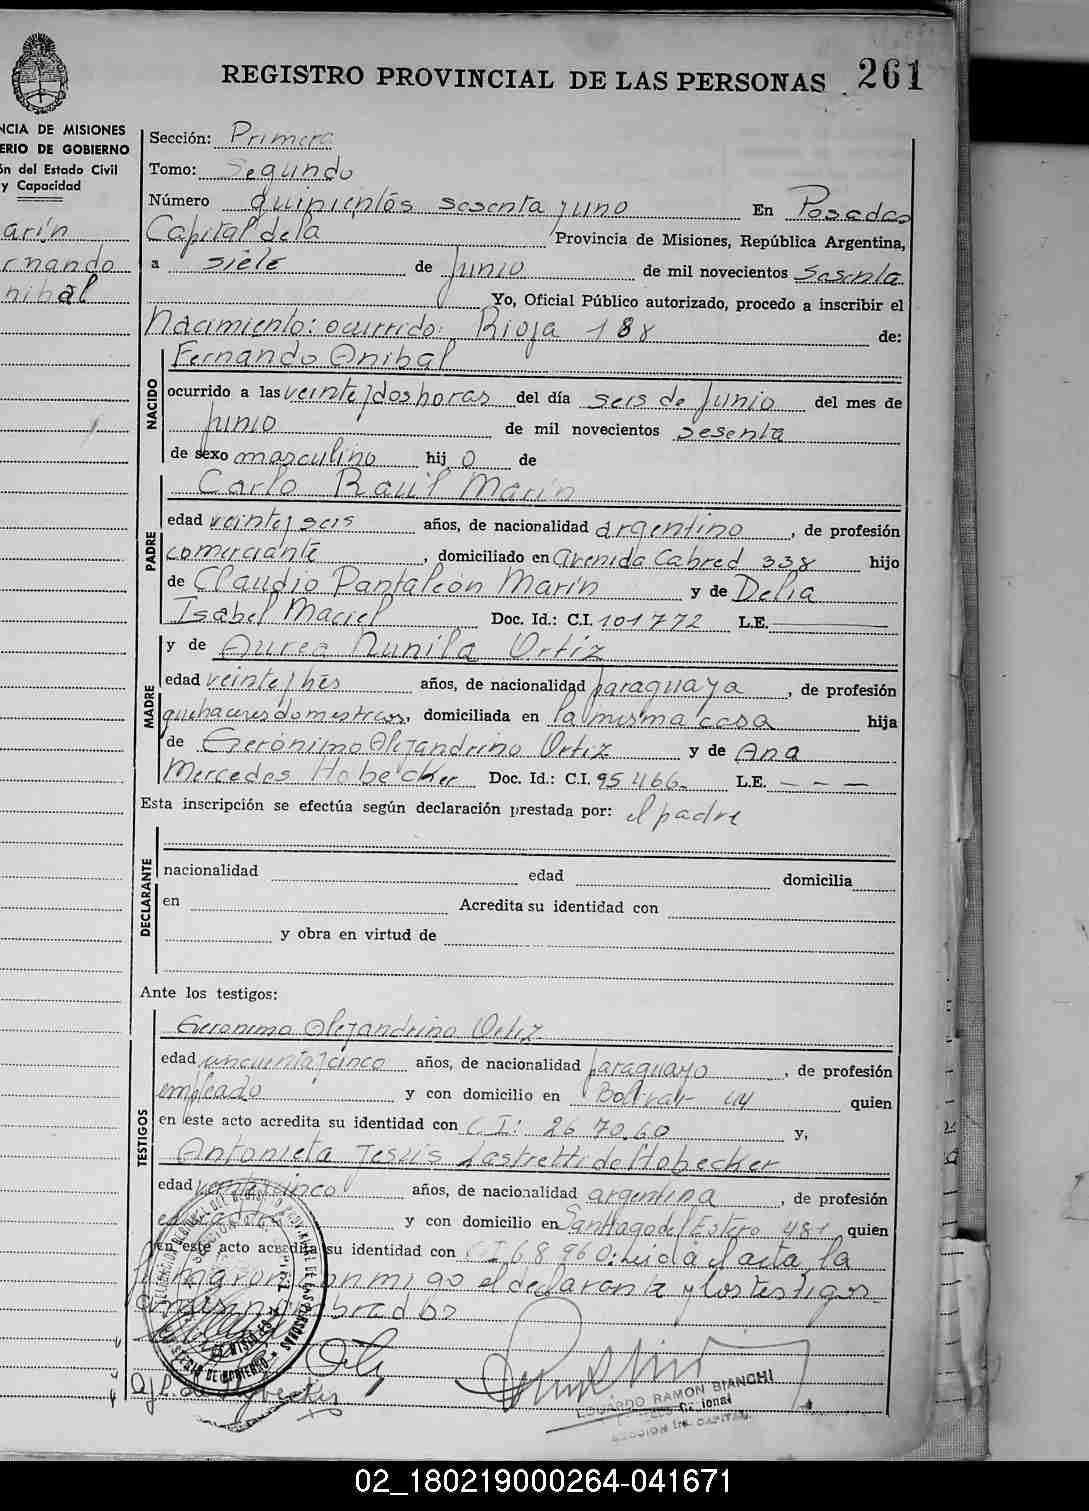 REGISTRO PROVINCIAL DE LAS PERSONAS 261
NCIA DE MISIONES
ERIO DE GOBIERNO
ón del Estado Civil
y Capacidad
arín
rnando
nibal
Sección: Primera
Tomo: Segundo
Número quinientos sesenta y uno En Posadas
Capital de la Provincia de Misiones, República Argentina,
a siete de Junio de mil novecientos Sesenta
Yo, Oficial Público autorizado, procedo a inscribir el
Nacimiento: ocurrido: Rioja 188 de:
NACIDO
Fernando Anibal
ocurrido a las veinte y dos horas del día seis de Junio del mes de
Junio de mil novecientos sesenta
de sexo masculino hij o de
PADRE
Carlo Raúl Marin
edad veinte y seis años, de nacionalidad argentino, de profesión
comerciante, domiciliado en Avenida Cabred 338 hijo
de Claudio Pantaleón Marin y de Delia
Isabel Maciel Doc. Id.: C.I. 101772 L.E.
MADRE
y de Aurea Nunila Ortiz
edad veinte y tres años, de nacionalidad paraguaya, de profesión
quehaceres domesticos, domiciliada en la misma casa hija
de Gerónimo Alejandrino Ortiz y de Ana
Mercedes Hobecker Doc. Id.: C.I. 95466 L.E. - - -
Esta inscripción se efectúa según declaración prestada por: el padre
DECLARANTE
nacionalidad edad domicilia
en Acredita su identidad con
y obra en virtud de
Ante los testigos:
TESTIGOS
Geronimo Alejandrino Ortiz
edad cincuenta y cinco años, de nacionalidad paraguayo, de profesión
empleado y con domicilio en Bolivar quien
en este acto acredita su identidad con C I: 267060 y,
Antonieta Jesús Lastretti de Hobecker
edad veinte y cinco años, de nacionalidad argentina, de profesión
y con domicilio en Santiago del Estero 481 quien
en este acto acredita su identidad con C I 68960: Leida el acta, la
firmaron conmigo el declarante y los testigos
nombrados
EDUARDO RAMON BIANCHI
02_180219000264-041671